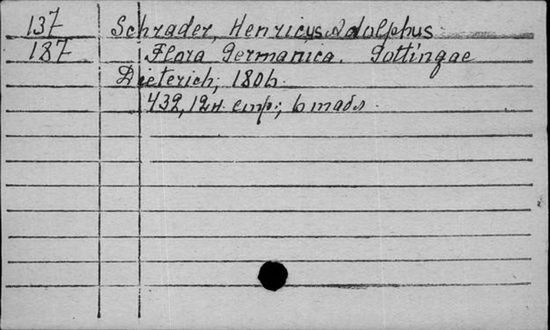 137 Schrader, Henricus Adolphus
187 Flora Germanica. Gottingae
Dieterich, 1806.
432, 12 стр.;